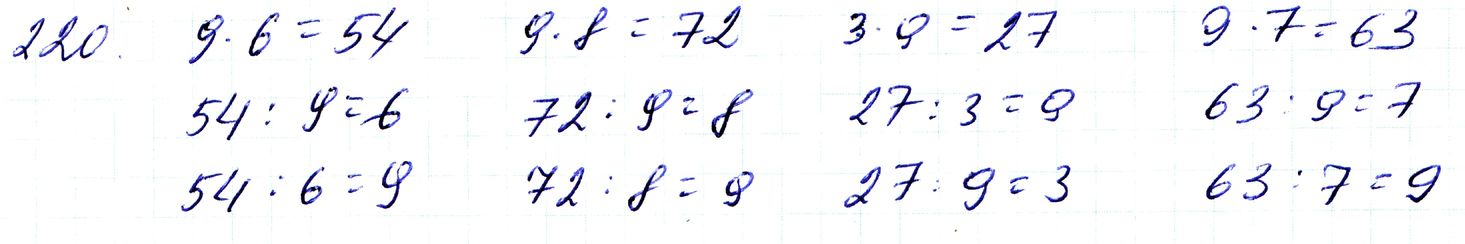 220. 9·6=54 9·8=72 3·9=27 9·7=63
54:9=6 72:9=8 27:3=9 63:9=7
54:6=9 72:8=9 27:9=3 63:7=9